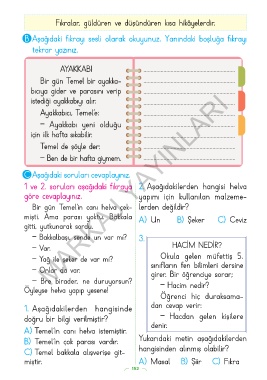 Fıkralar, güldüren ve düşündüren kısa hikâyelerdir.
B Aşağıdaki fıkrayı sesli olarak okuyunuz. Yanındaki boşluğa fıkrayı
tekrar yazınız.
AYAKKABI
Bir gün Temel bir ayakka-
bıcıya gider ve parasını verip
istediği ayakkabıyı alır.
Ayakkabıcı, Temel'e:
– Ayakkabı yeni olduğu
için ilk hafta sıkabilir.
Temel de şöyle der:
– Ben de bir hafta giymem.
C Aşağıdaki soruları cevaplayınız.
1 ve 2. soruları aşağıdaki fıkraya
göre cevaplayınız.
Bir gün Temel'in canı helva çek-
mişti. Ama parası yoktu. Bakkala
gitti, yutkunarak sordu.
– Bakkalbaşı, sende un var mı?
– Var.
– Yağ ile şeker de var mı?
– Onlar da var.
– Bre birader, ne duruyorsun?
Öyleyse helva yapıp yesene!
1. Aşağıdakilerden hangisinde
doğru bir bilgi verilmiştir?
A) Temel'in canı helva istemiştir.
B) Temel'in çok parası vardır.
C) Temel bakkala alışverişe git-
miştir.
2. Aşağıdakilerden hangisi helva
yapımı için kullanılan malzeme-
lerden değildir?
A) Un B) Şeker C) Ceviz
3.
HACİM NEDİR?
Okula gelen müfettiş 5.
sınıfların fen bilimleri dersine
girer. Bir öğrenciye sorar;
– Hacim nedir?
Öğrenci hiç duraksama-
dan cevap verir:
– Hacdan gelen kişilere
denir.
Yukarıdaki metin aşağıdakilerden
hangisinden alınmış olabilir?
A) Masal B) Şiir C) Fıkra
153
YAYINLARI